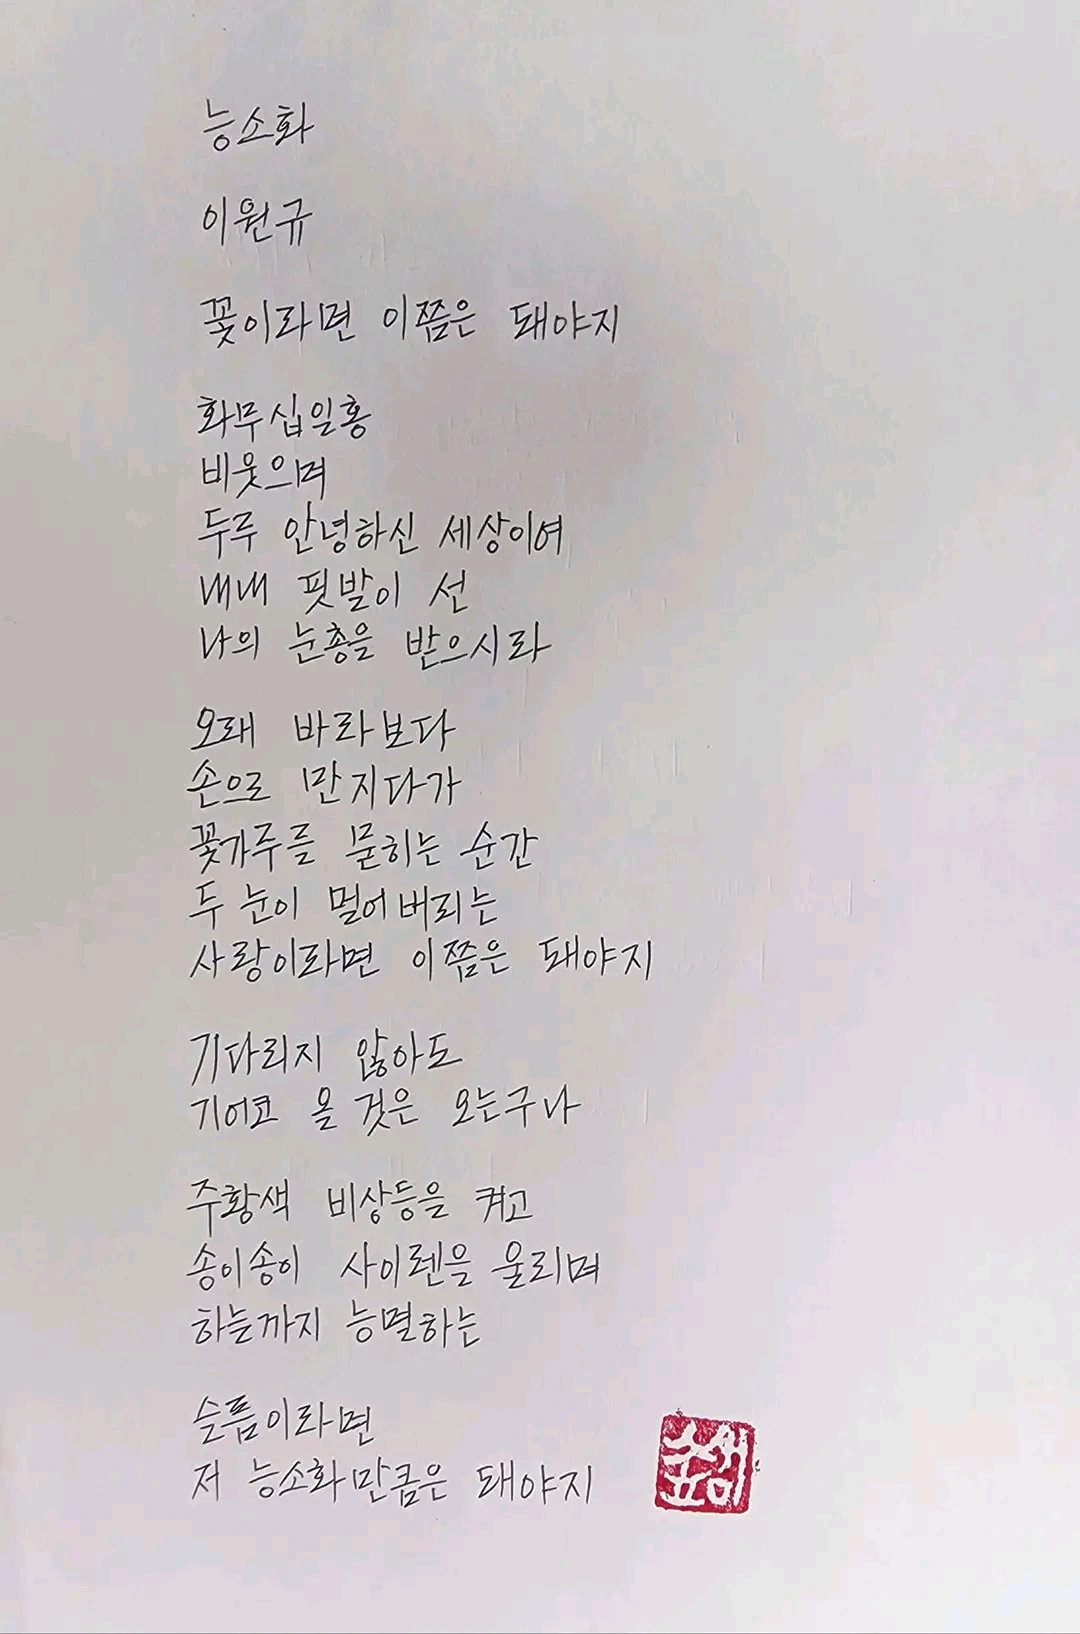 능소화
이원규
꽃이라면 이쯤은 돼야지
화무십일홍
비웃으며
두루 안녕하신 세상이여
내내 핏발이 선
나의 눈총을 받으시라
오래 바라보다
손으로 만지다가
꽃가루를 묻히는 순간
두 눈이 멀어버리는
사랑이라면 이쯤은 돼야지
기다리지 않아도
기어코 올 것은 오는구나
주황색 비상등을 켜고
송이송이 사이렌을 울리며
하늘까지 능멸하는
슬픔이라면
저 능소화만큼은 돼야지